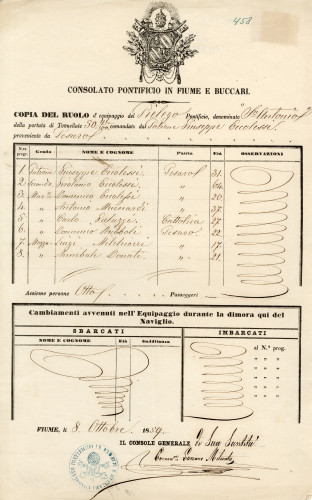 458
CONSOLATO PONTIFICIO IN FIUME E BUCCARI.
COPIA DEL RUOLO d'equipaggio del Pielego Pontificio, denominato S. Antonio
della portata di Tonnellate 50 comandato dal Padrone Giuseppe Ercolessi
proveniente da Pesaro
Nro. prog. Grado NOME E COGNOME Patria Età OSSERVAZIONI
1 Padrone Giuseppe Ercolessi Pesaro 31.
2 Ercolessi " 64.
3 Mar.o Domenico Ercolessi " 37.
4 " Antonio " 44.
5 " Carlo Cattolica 27
6 " Domenico Pesaro 22.
7 Mozzo Luigi Melchiorri " 17.
8 " Annibale Donati " 21.
Assieme persone Otto Passeggeri
Cambiamenti avvenuti nell' Equipaggio durante la dimora qui del
Naviglio.
SBARCATI IMBARCATI
NOME E COGNOME Età Suddit. al N.o prog.
FIUME, li 8 Ottobre 1859.
IL CONSOLE GENERALE di Sua Santità